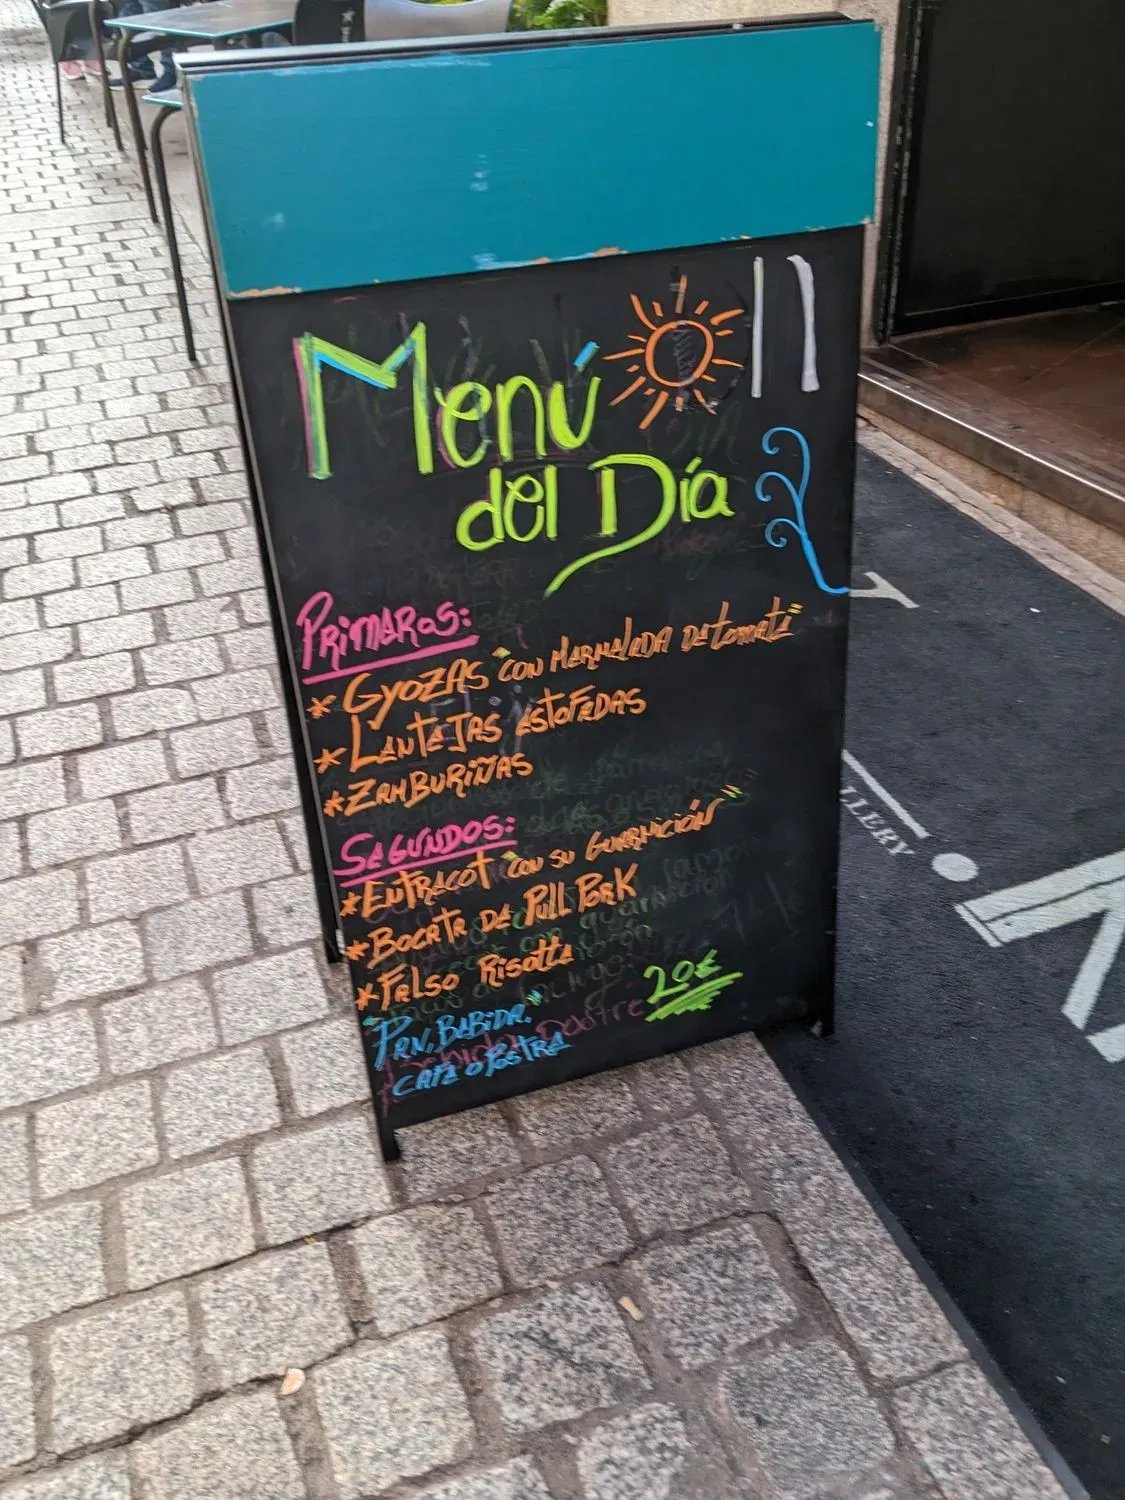 Menú
del Día
PRIMEROS:
* GYOZAS "CON MARMALEDA DE TOMATE"
* LENTEJAS ESTOFEDAS
* ZAMBURIÑAS
SEGUNDOS:
* ENTRECOT "CON SU GUARNICIÓN"
* BOCATA DE PULL PORK
* FALSO RISOTTO
20€
"PAN, BEBIDA."
CAFE O POSTRE
LLERY